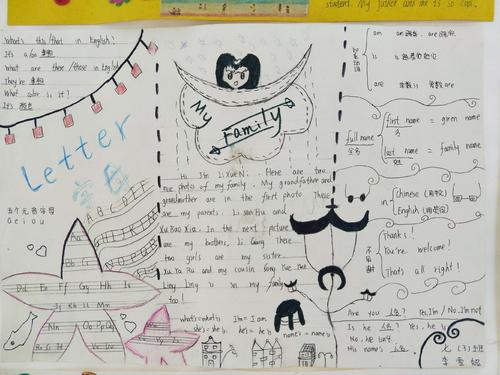 student. My justice and me is so cool.
What's this/that in English?
It's a/an 单数
What are these/those in English
They're 复数
What color is it?
It's 颜色
Letter
五个元音字母
a e i o u
ABCDEFG
Aa
Bb Cc
Dd Ee Ff Gg Hh Ii
Jj Kk Ll Mm
Nn Oo Pp Qq
My
Family
Hi I'm Li
Here are two
photos of my family. My grandfather and
grandmother are in the first photo. These
are my parents, Li and
Xu Bao Xia. In the next picture
are my brothers, Li Gang. These
two girls are my sister
Ya Ru and my cousin Song Yue Mei.
Ling Ling is in my family
too!
what's=what is I'm = I am
she's = she is he's = he is
name's = name is
am am
is is
are are
full name
全名
first name = given name
名
last name = family name
姓
in + Chinese
English
不用谢
Thanks!
You're welcome!
That's all right!
Are you 人名? Yes, I'm / No, I'm not
Is he 人名? Yes, he is
No, he isn't
His name's 人名.
七、(3)班
李雪妮